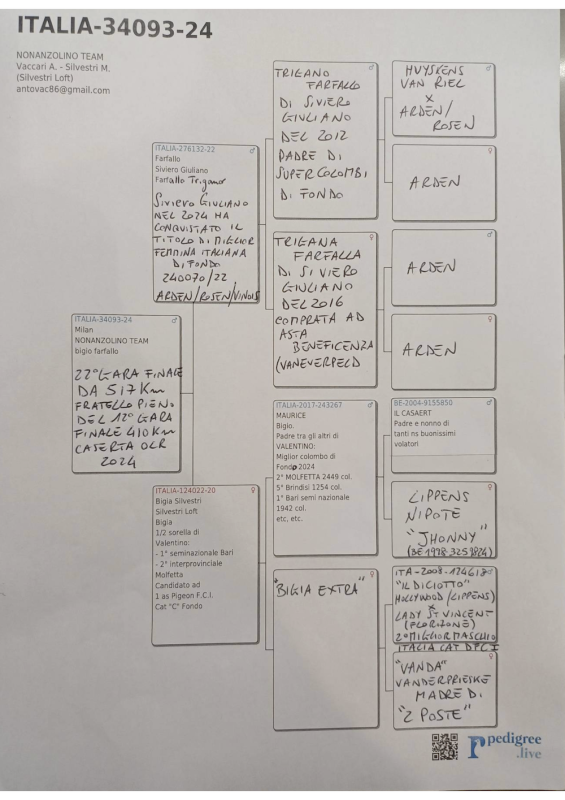 ITALIA-34093-24
NONANZOLINO TEAM
Vaccari A. - Silvestri M.
(Silvestri Loft)
antovac86@gmail.com
ITALIA-34093-24 ♂
Milan
NONANZOLINO TEAM
bigio farfallo
22° GARA FINALE
DA 517 Km
FRATELLO PIENO
DEL 12° GARA
FINALE 410 Km
CASERTA OLR
2024
ITALIA-276132-22 ♂
Farfallo
Siviero Giuliano
Farfallo Trigano
SIVIERO GIULIANO
NEL 2024 HA
CONQUISTATO IL
TITOLO DI MIGLIOR
FEMMINA ITALIANA
DI FONDO
240070/22
ARDEN/ROSEN/VINOIS
ITALIA-124022-20 ♀
Bigia Silvestri
Silvestri Loft
Bigia
1/2 sorella di
Valentino:
- 1° seminazionale Bari
- 2° interprovinciale
Molfetta
Candidato ad
1 as Pigeon F.C.I.
Cat "C" Fondo
♂
TRIGANO
FARFALLO
DI SIVIERO
GIULIANO
DEL 2012
PADRE DI
SUPER COLOMBI
DI FONDO
♀
TRIGANA
FARFALLA
DI SIVIERO
GIULIANO
DEL 2016
COMPRATA AD
ASTA
BENEFICENZA
(VANEVERPELD
ITALIA-2017-243267 ♂
MAURICE
Bigio.
Padre tra gli altri di
VALENTINO:
Miglior colombo di
Fondo 2024
2° MOLFETTA 2449 col.
5° Brindisi 1254 col.
1° Bari semi nazionale
1942 col.
etc, etc.
♀
"BIGIA EXTRA"
♂
HUYSKENS
VAN RIEL
X
ARDEN/
ROSEN
♀
ARDEN
♂
ARDEN
♀
ARDEN
BE-2004-9155850 ♂
IL CASAERT
Padre e nonno di
tanti ns buonissimi
volatori
♀
LIPPENS
NIPOTE
"JHONNY"
ITA-2008-124618
"IL DICIOTTO"
HOLLYWOOD (LIPPENS)
X
LADY ST VINCENT
(FLORIZONE)
2° MIGLIOR MASCHIO
ITALIA CAT D FCI
♀
"VANDA"
VANDERPRIESKE
MADRE DI
"2 POSTE"
pedigree
.live